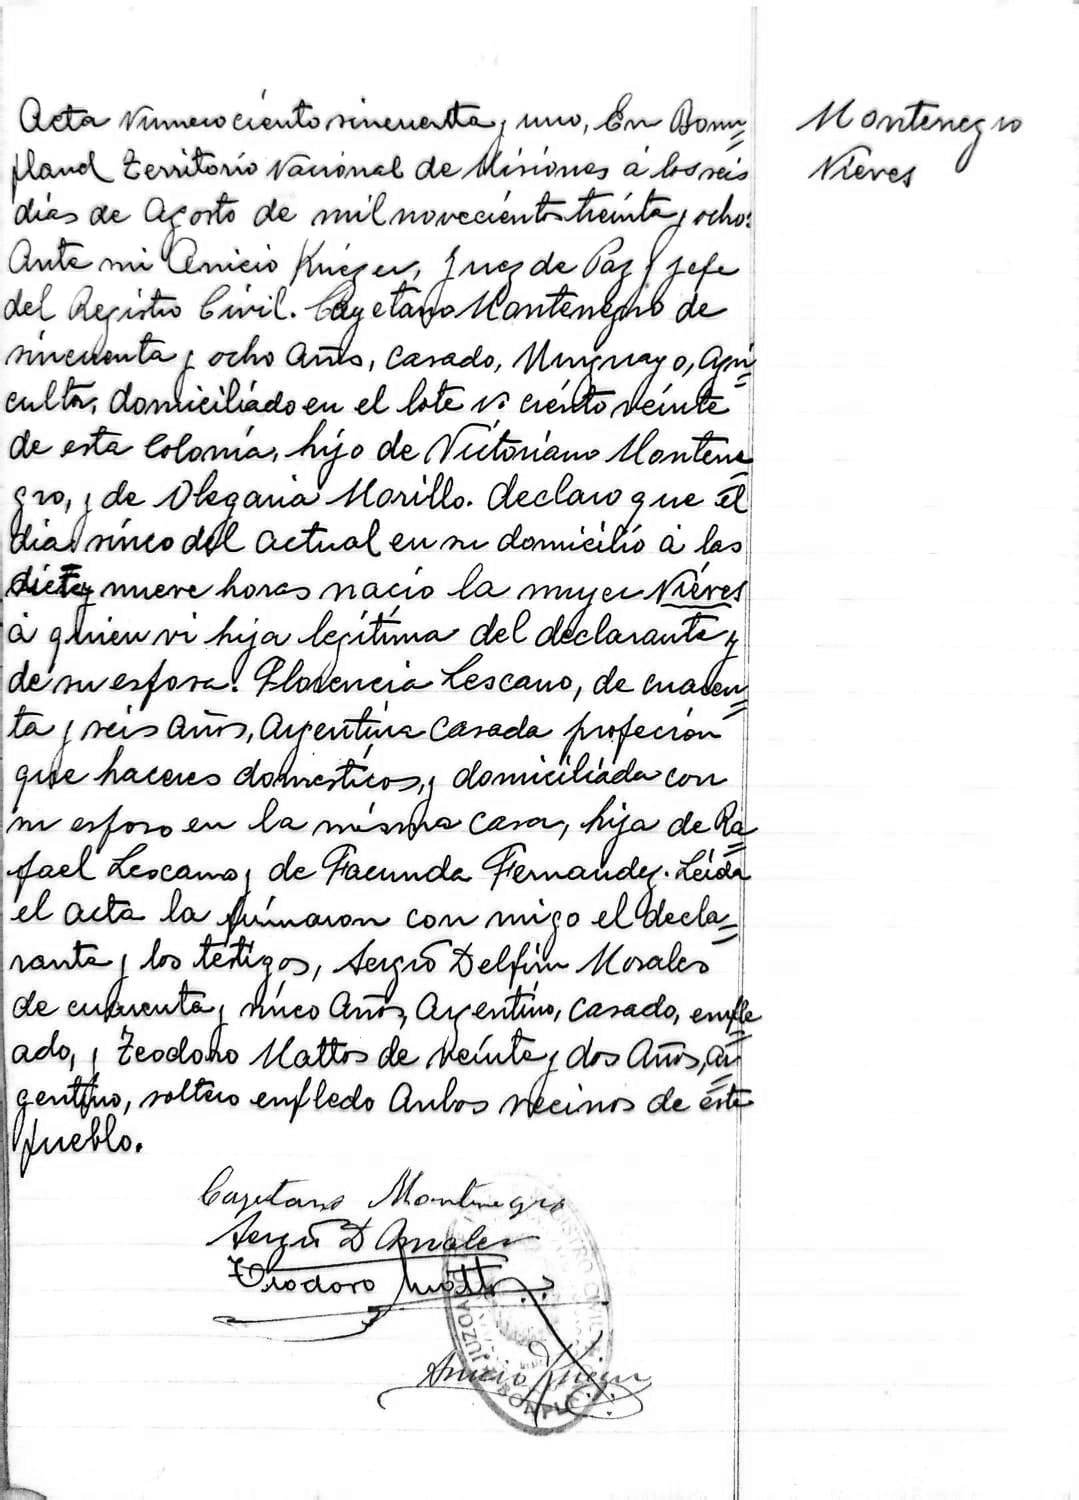 Acta Numero ciento sincuenta y uno, En Bomn=
pland Territorio Nacional de Misiones á los seis
dias de Agosto de mil novecientos treinta y ocho:
Ante mi Anicio Krieger, Juez de Paz y jefe
del Registro Civil. Cayetano Montenegro de
sincuenta y ocho Años, casado, Uruguayo, Agri=
cultor, domiciliado en el lote No ciento veinte
de esta Colonia, hijo de Victoriano Montene=
gro, y de Olegaria Morillo. declaro que el
dia sinco del actual en su domicilio á las
diez y nueve horas nacio la mujer Niéves
á quien vi hija legítima del declarante y
de su esposa: Florencia Lescano, de cuaren=
ta y seis Años, Argentina casada profecion
que haceres domesticos, y domiciliada con
su esposo en la misma casa, hija de Ra=
fael Lescano y de Facunda Fernandez. Leida
el acta la firmaron con migo el decla=
rante y los testigos, Sergio Delfin Morales
de cuarenta y sinco Años, Argentino, casado, emple=
ado, y Teodoro Mattos de veinte y dos Años, Ar=
gentino, soltero empledo Anbos vecinos de este
pueblo.
Cayetano Montenegro
Sergio D Morales
Teodoro Matto
Anicio Krieger
REGISTRO CIVIL
JUZGADO
BONPL
Montenegro
Nieves